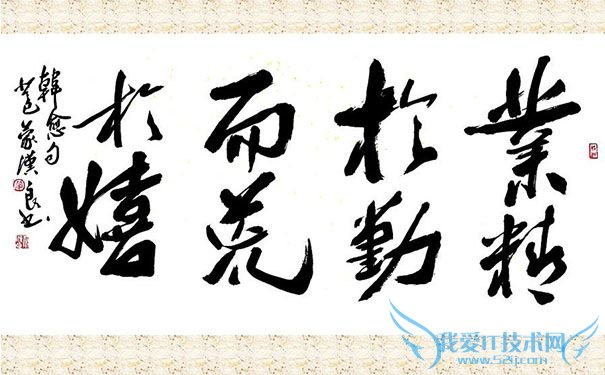 業精
於勤
而荒
於嬉
韓愈句
漢良书
我爱IT技术网
www.52ij.com